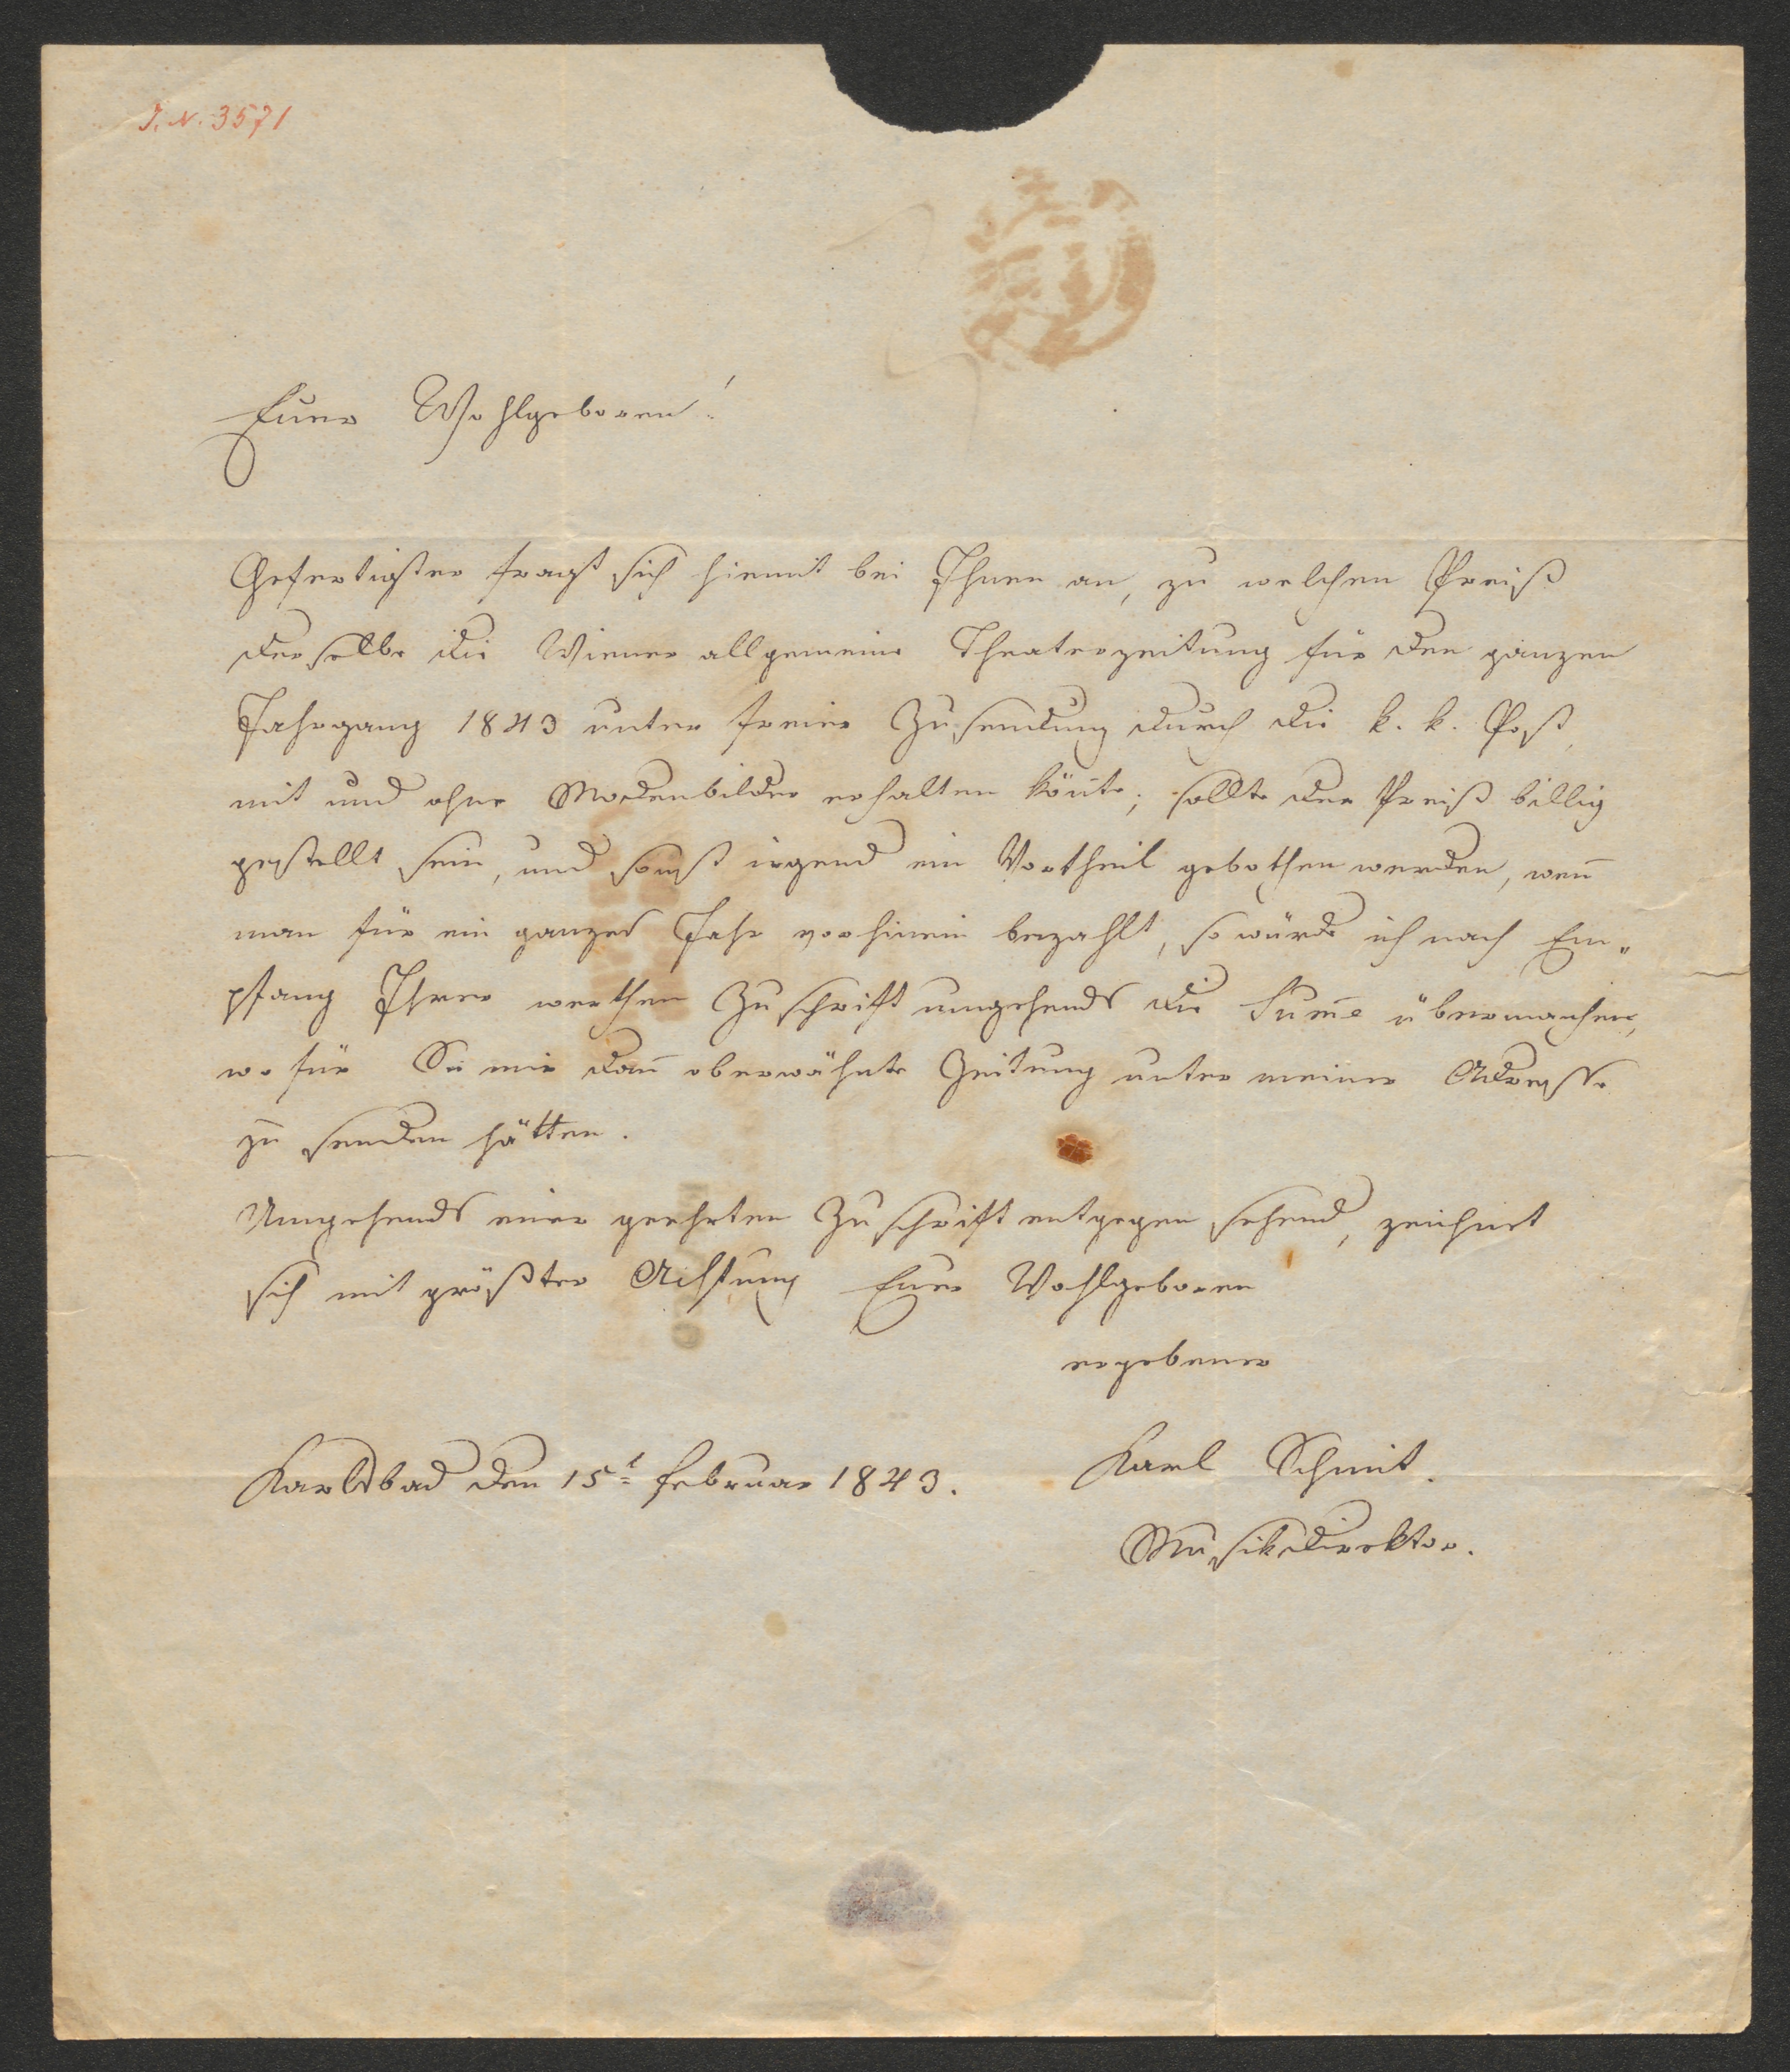 J. N. 3571
Euer Wohlgeboren!
Gefertigter fragt sich hiemit bei Ihnen an, zu welchen Preiß
derselbe die Wiener allgemeine Theaterzeitung für den ganzen
Jahrgang 1843 unter freier Zusendung durch die k. k. Post,
mit und ohne Modenbilder erhalten köñte; sollte der Preiß billig
gestellt sein, und sonst irgend ein Vortheil gebothen werden, weñ
man für ein ganzes Jahr vorhinein bezahlt, so würde ich nach Em„
pfang Ihrer werthen Zuschrift umgehends die Sum̄e übermachen,
wofür Sie mir dañ oberwähnte Zeitung unter meiner Adresse
zu senden hätten.
Umgehends einer geehrten Zuschrift entgegen sehend, zeichnet
sich mit größter Achtung Euer Wohlgeboren
ergebener
Karlsbad den 15t Februar 1843.
Karl Schmit.
Musikdirektor.